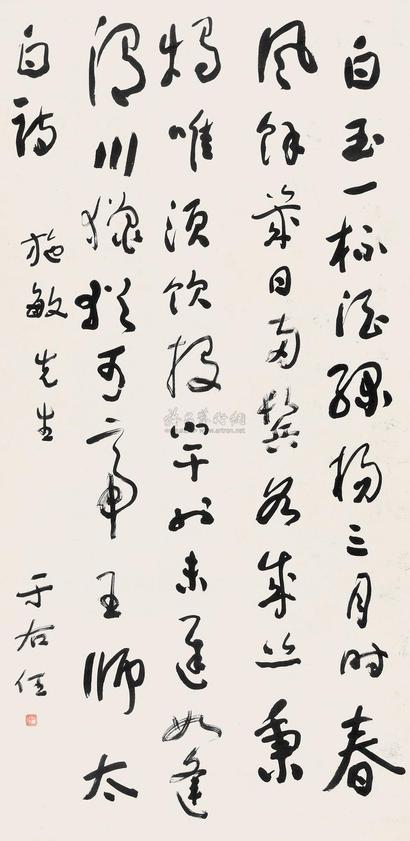 白玉一杯酒綠楊三月時春
風餘幾日兩鬢各成絲秉
燭唯須飲投竿也未遲如逢
渭川獵猶可帝王師太
白詩
施敏先生
于右任